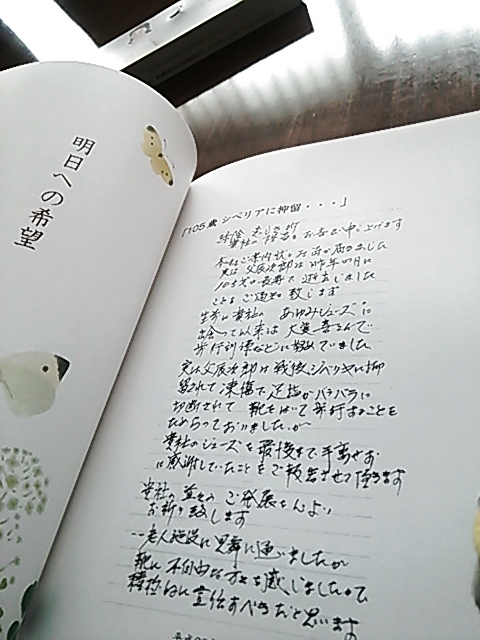 明日への希望
「105歳 シベリアに抑留・・・」
貴社の 皆様 お喜び申し上げます
本日ご案内状 お届き
実は父辰次郎は昨年の 月に
105才の長寿で 逝去しました
ことを ご通知致します
生前に貴社の あゆみシューズに
出会って以来は大変喜んで
歩行訓練などに努めていました
実は父辰次郎は戦後シベリヤに抑
留されて凍傷で足指がバラバラに
切断されて 靴をはいて歩行することを
ておりましたが
貴社のシューズを最後まで手離せず
に感謝していたことをご報告させて頂きます
貴社の益々の ご発展を
お祈り致します
老人施設に見舞に通いましたが
靴に不自由な方を感じましたので
積極的に宣伝すべきだと思います